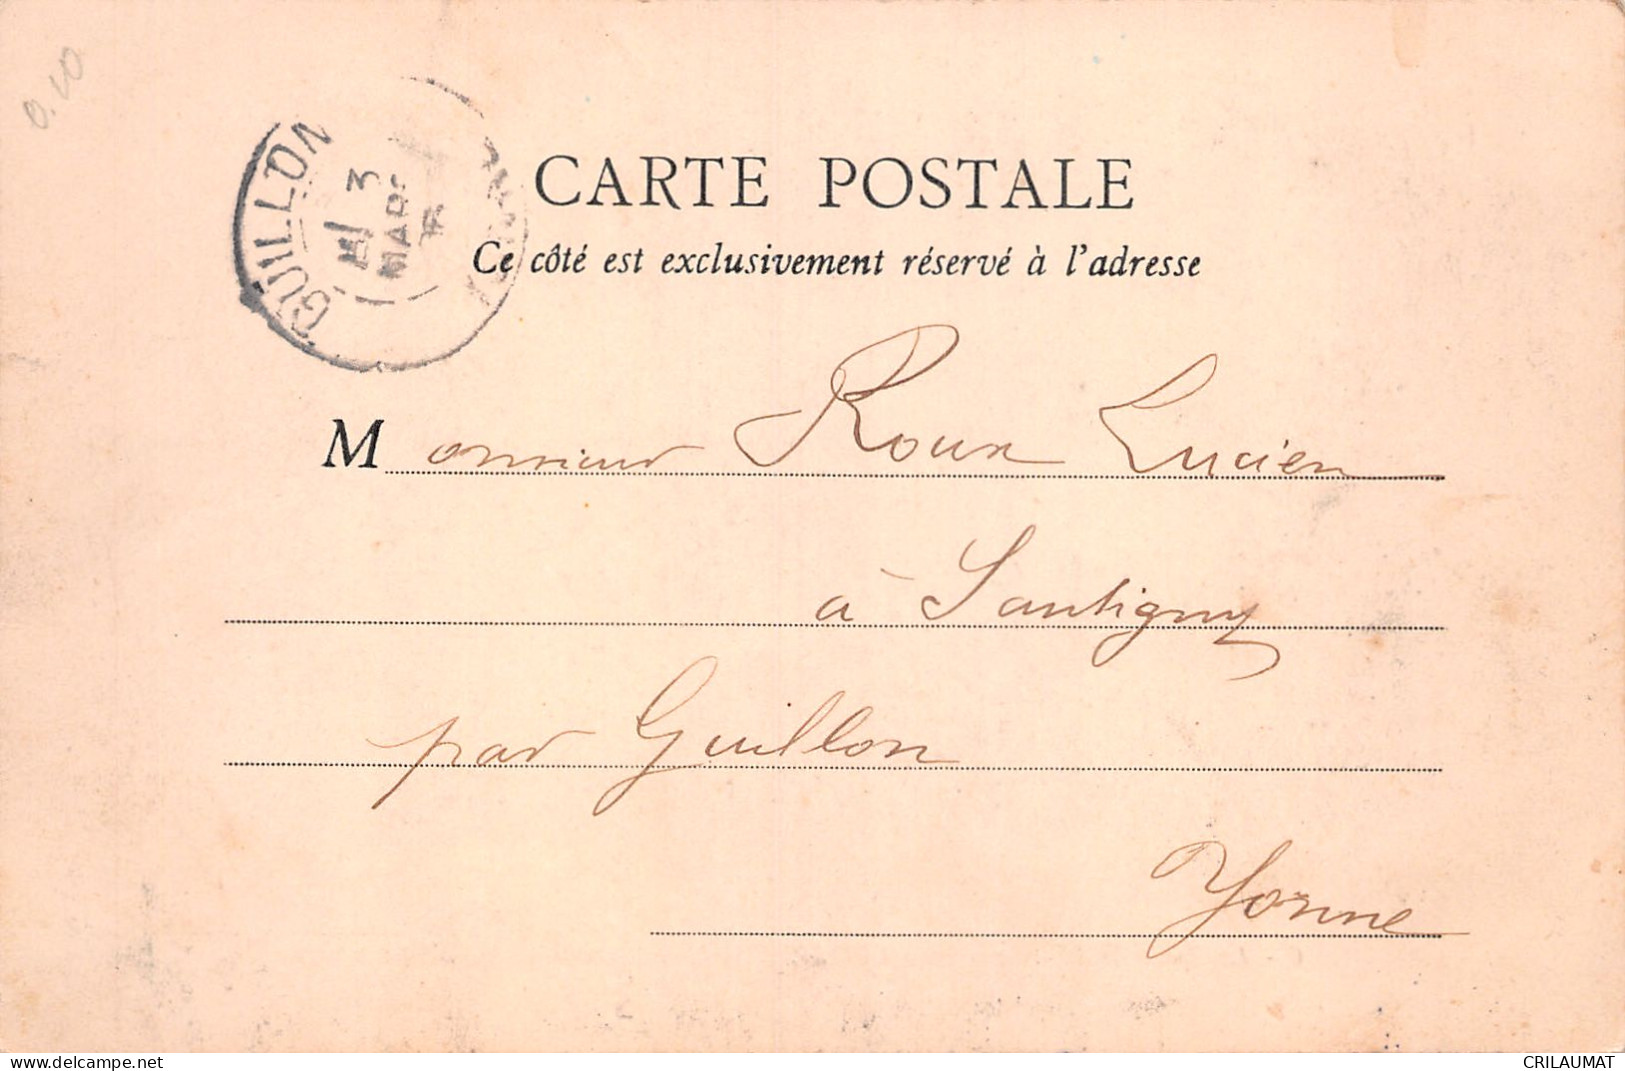 0.10
GUILLON
3
MARS
CARTE POSTALE
Ce côté est exclusivement réservé à l'adresse
Monsieur Roux Lucien
à Santigny
par Guillon
Yonne
delcampe.net
CRILAUMAT